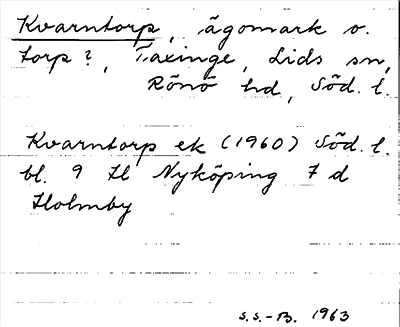 Kvarntorp, ägomark o.
torp?, Taxinge, Lids sn,
Rönö hd, Söd. l.
Kvarntorp ek (1960) Söd. l.
bl. 9 H Nyköping 7 d
Holmby
S.S.-B. 1963